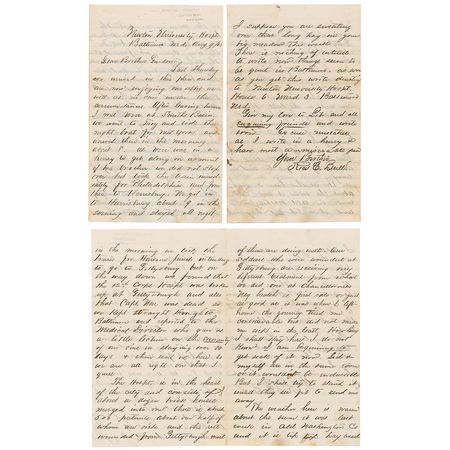 Newton University Hospt.
Baltimore Md. Aug 9/63
Dear Brother Gurdon,
Last Thursday
we arrived in this place and
are now enjoying ourselves as
well as we can under the
circumstances. After leaving home
I met Wm at Smiths Basin,
we went to Troy and took the
night boat for New York and
arrived there in the morning
about 6. As Wm was in no
hurry to get along on account
of his brother we did not stop
over but took the train immed
iately for Philadelphia and from
there to Harrisburg. We got in
to Harrisburg about 9 in the
evening and stayed all night
in the morning we took the
train for Hanover Junct. intending
to go to Gettysburg but on
the way down we found that
the 12th Corps Hospt was broken
up at Gettysburgh and also
that Capt. was dead so
we kept straight through to
Baltimore and reported to the
Medical Director who gave us
a little on the
of our sins in staying over 20
days & then sent us here so
we are all right on that I
guess.
The Hospt. is in the heart
of the city and consists of
about a dozen brick houses
merged into one. There is about
200 patients about one half of
whom are sick and the rest
wounded from Gettysburgh most
of them are doing well. Our
soldiers who were wounded at
Gettysburg are receiving very
different treatment from what
we did one at Chancellorsville
My health is first rate or just
as good as it was when I left
home the journey tired me
considerable but did not make
me sick in the least. How long
I shall stay here I do not
know I am beginning to
get sick of it now. Lib &
myself are in the same room
or it wouldn't be endurable
But I shall try to stand it
until they see fit to send me
away.
The weather here is warm
about the same it was last
week in old Washington Co
and it is hay weather
I suppose you are sweating
over that long hay in your
big meadow this week
There is nothing of interest
to write now things seem to
be quiet in Baltimore. As soon
as you get this write directing
to Newton University Hospt.
House 6 Ward C Baltimore
Md.
Give my love to Lib and all
enquiring friends and write
soon excuse mistakes
as I write in a hurry &
have most a miserable pen
Your Brother
C. Bull